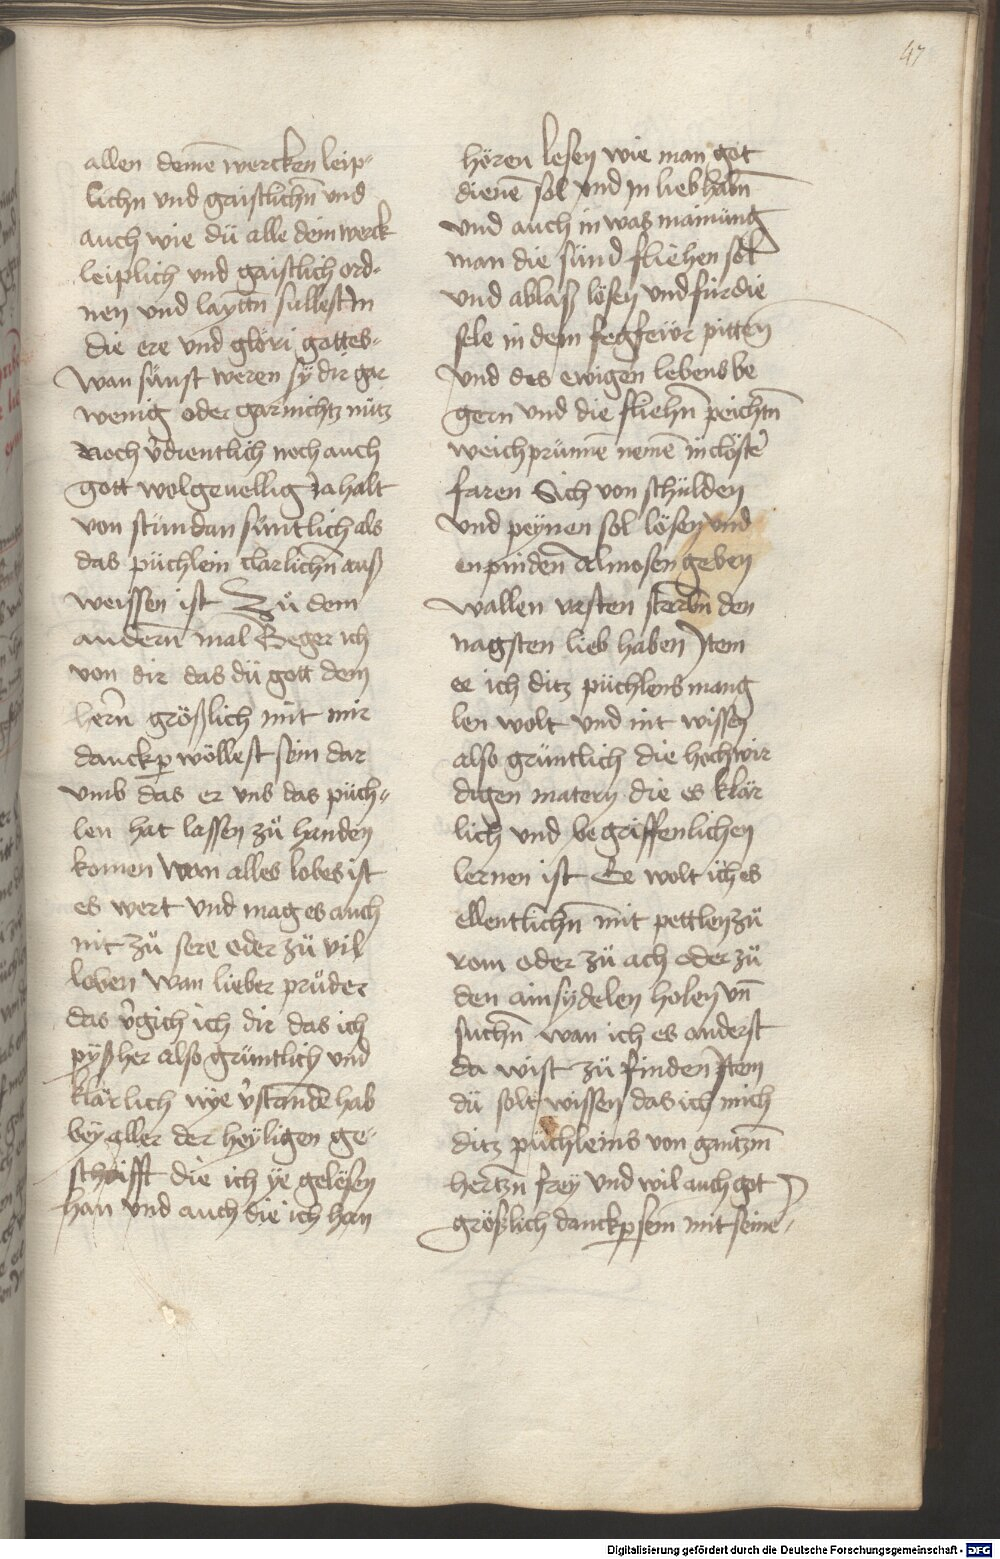 47
allen deinē wercken leip-
lichn vnd gaistlichn̄ vnd
auch wie dü alle dein werck
leiplich vnd gaistlich ord-
nen vnd laytn̄ süllest In
die ere vnd glöri gottes-
wan sünst weren sy dir gar
wenig oder gar nichtz nütz
noch v̓dientlich noch auch
gott wolgeuellig Ja halt
von stündan süntlich als
das püchlein clarlichn̄ auß
weissen ist Zü dem
andern̄ mal Beger ich
von dir das dü gott dem
hern̄ größlich mit mir
danckp wöllest sein dar
vmb das er vns das püch-
len hat lassen zü handen
komen wan alles lobes ist
es wert vnd mag es auch
nit zü sere oder zü vil
loben wan lieber prüder
das v̓gich ich dir das ich
pyßher also grüntlich vnd
klärlich nye v̓standē hab
bey aller der heyligen ge-
schrifft die ich ye gelesen
han vnd auch die ich han
hören lesen wie man got
dienē sol vnd In lieb habn̄
vnd auch in was mainüng
man die sünd fliehen sol
vnd ablaß lösen vnd für die
sele in dem fegfeiir pitten
vnd des ewigen lebens be
gern vnd die fliehn̄ peichtn̄
weichprünnē nemē in clöst̓
faren Sich von schülden
vnd peynen sol lösen vnd
enpindēn Almosen geben
wallen vasten sterbn̄ den
nagsten lieb haben Jtem
ee ich ditz püchlens mang
len wolt vnd nit wissen
also grüntlich die hochwir
digen matery die es klär
lich vnd begriffenlichen
lernen ist Ee wolt ich es
ellentlichn̄ mit pettlen zü
rom oder zü ach oder zü
den ainsydelen holen vn̄
suchn̄ wan ich es anderst
da wist zü finden Jtem
dü solt wissen das ich mich
ditz püchleins von gantzm̄
hertzn̄ frey vnd wil auch got
größlich danckp sein mit seinē
Digitalisierung gefördert durch die Deutsche Forschungsgemeinschaft - DFG